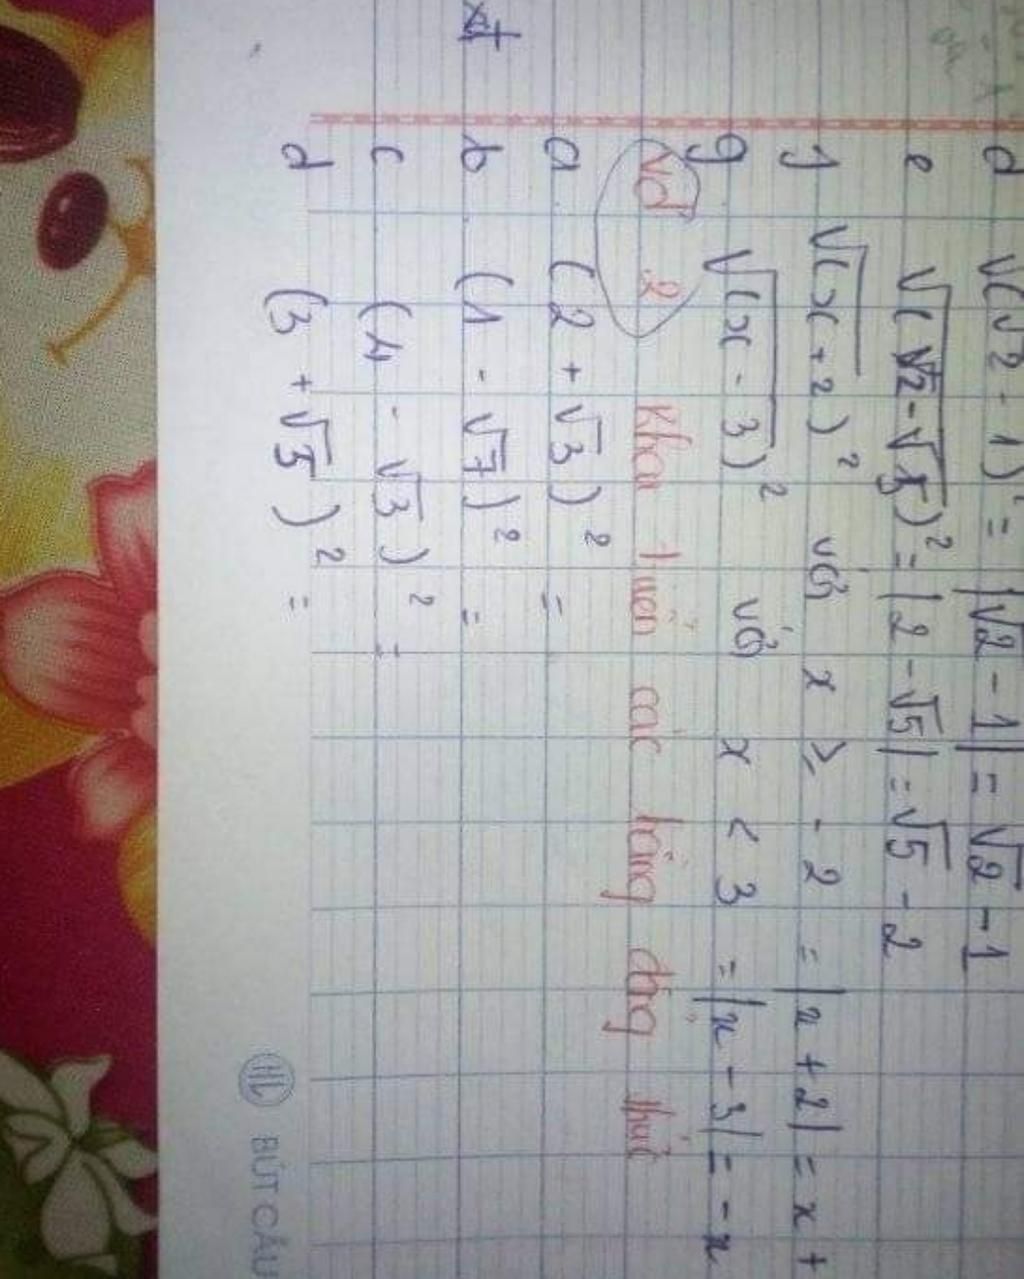 d √(√2 - 1)² = |√2 - 1| = √2 - 1
e √(√2 - √5)² = |2 - √5| = √5 - 2
f √(x + 2)² với x ≥ -2 = |x + 2| = x +
g √(x - 3)² với x < 3 = |x - 3| = -x
Vd 2 Khai triển các hằng đẳng thức
a (2 + √3)² =
b (1 - √7)² =
c (4 - √3)² =
d (3 + √5)² =
HL BÚT CÂU